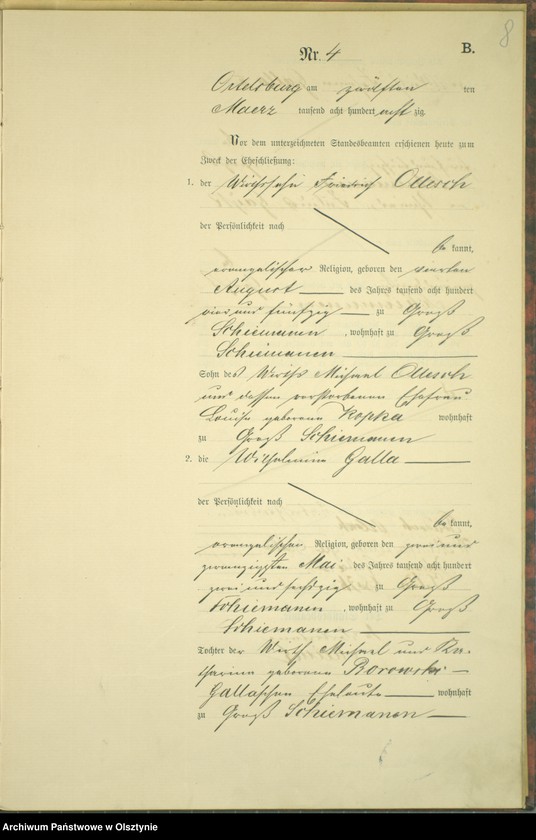 8
Nr. 4 B.
Ortelsburg am zwölften ten
Maerz tausend acht hundert achtzig.
Vor dem unterzeichneten Standesbeamten erschienen heute zum
Zweck der Eheschließung:
1. der Wirthssohn Friedrich Ollesch
der Persönlichkeit nach
bekannt,
evangelischer Religion, geboren den vierten
August des Jahres tausend acht hundert
vier und fünfzig zu Groß
Schiemanen, wohnhaft zu Groß
Schiemanen
Sohn des Wirths Michael Ollesch
und dessen verstorbenen Ehefrau
Louise geborene Kopka wohnhaft
zu Groß Schiemanen
2. die Wilhelmine Galla
der Persönlichkeit nach
bekannt,
evangelischen Religion, geboren den zwei und
zwanzigsten Mai des Jahres tausend acht hundert
zwei und sechszig zu Groß
Schiemanen, wohnhaft zu Groß
Schiemanen
Tochter der Wirth Michael und Ka-
tharina geborene Borowski
Gallaschen Eheleute wohnhaft
zu Groß Schiemanen
Archiwum Państwowe w Olsztynie